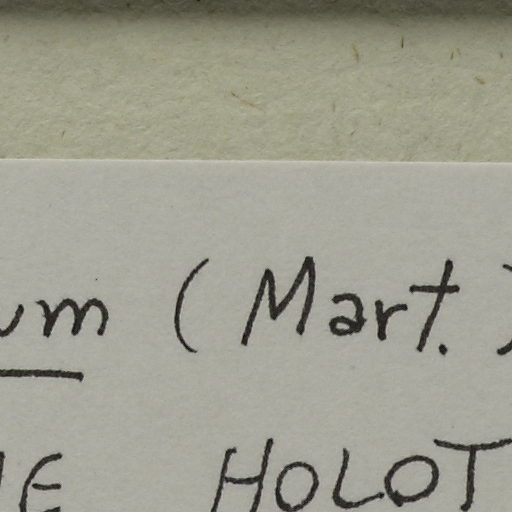 um (Mart.)
E HOLOT